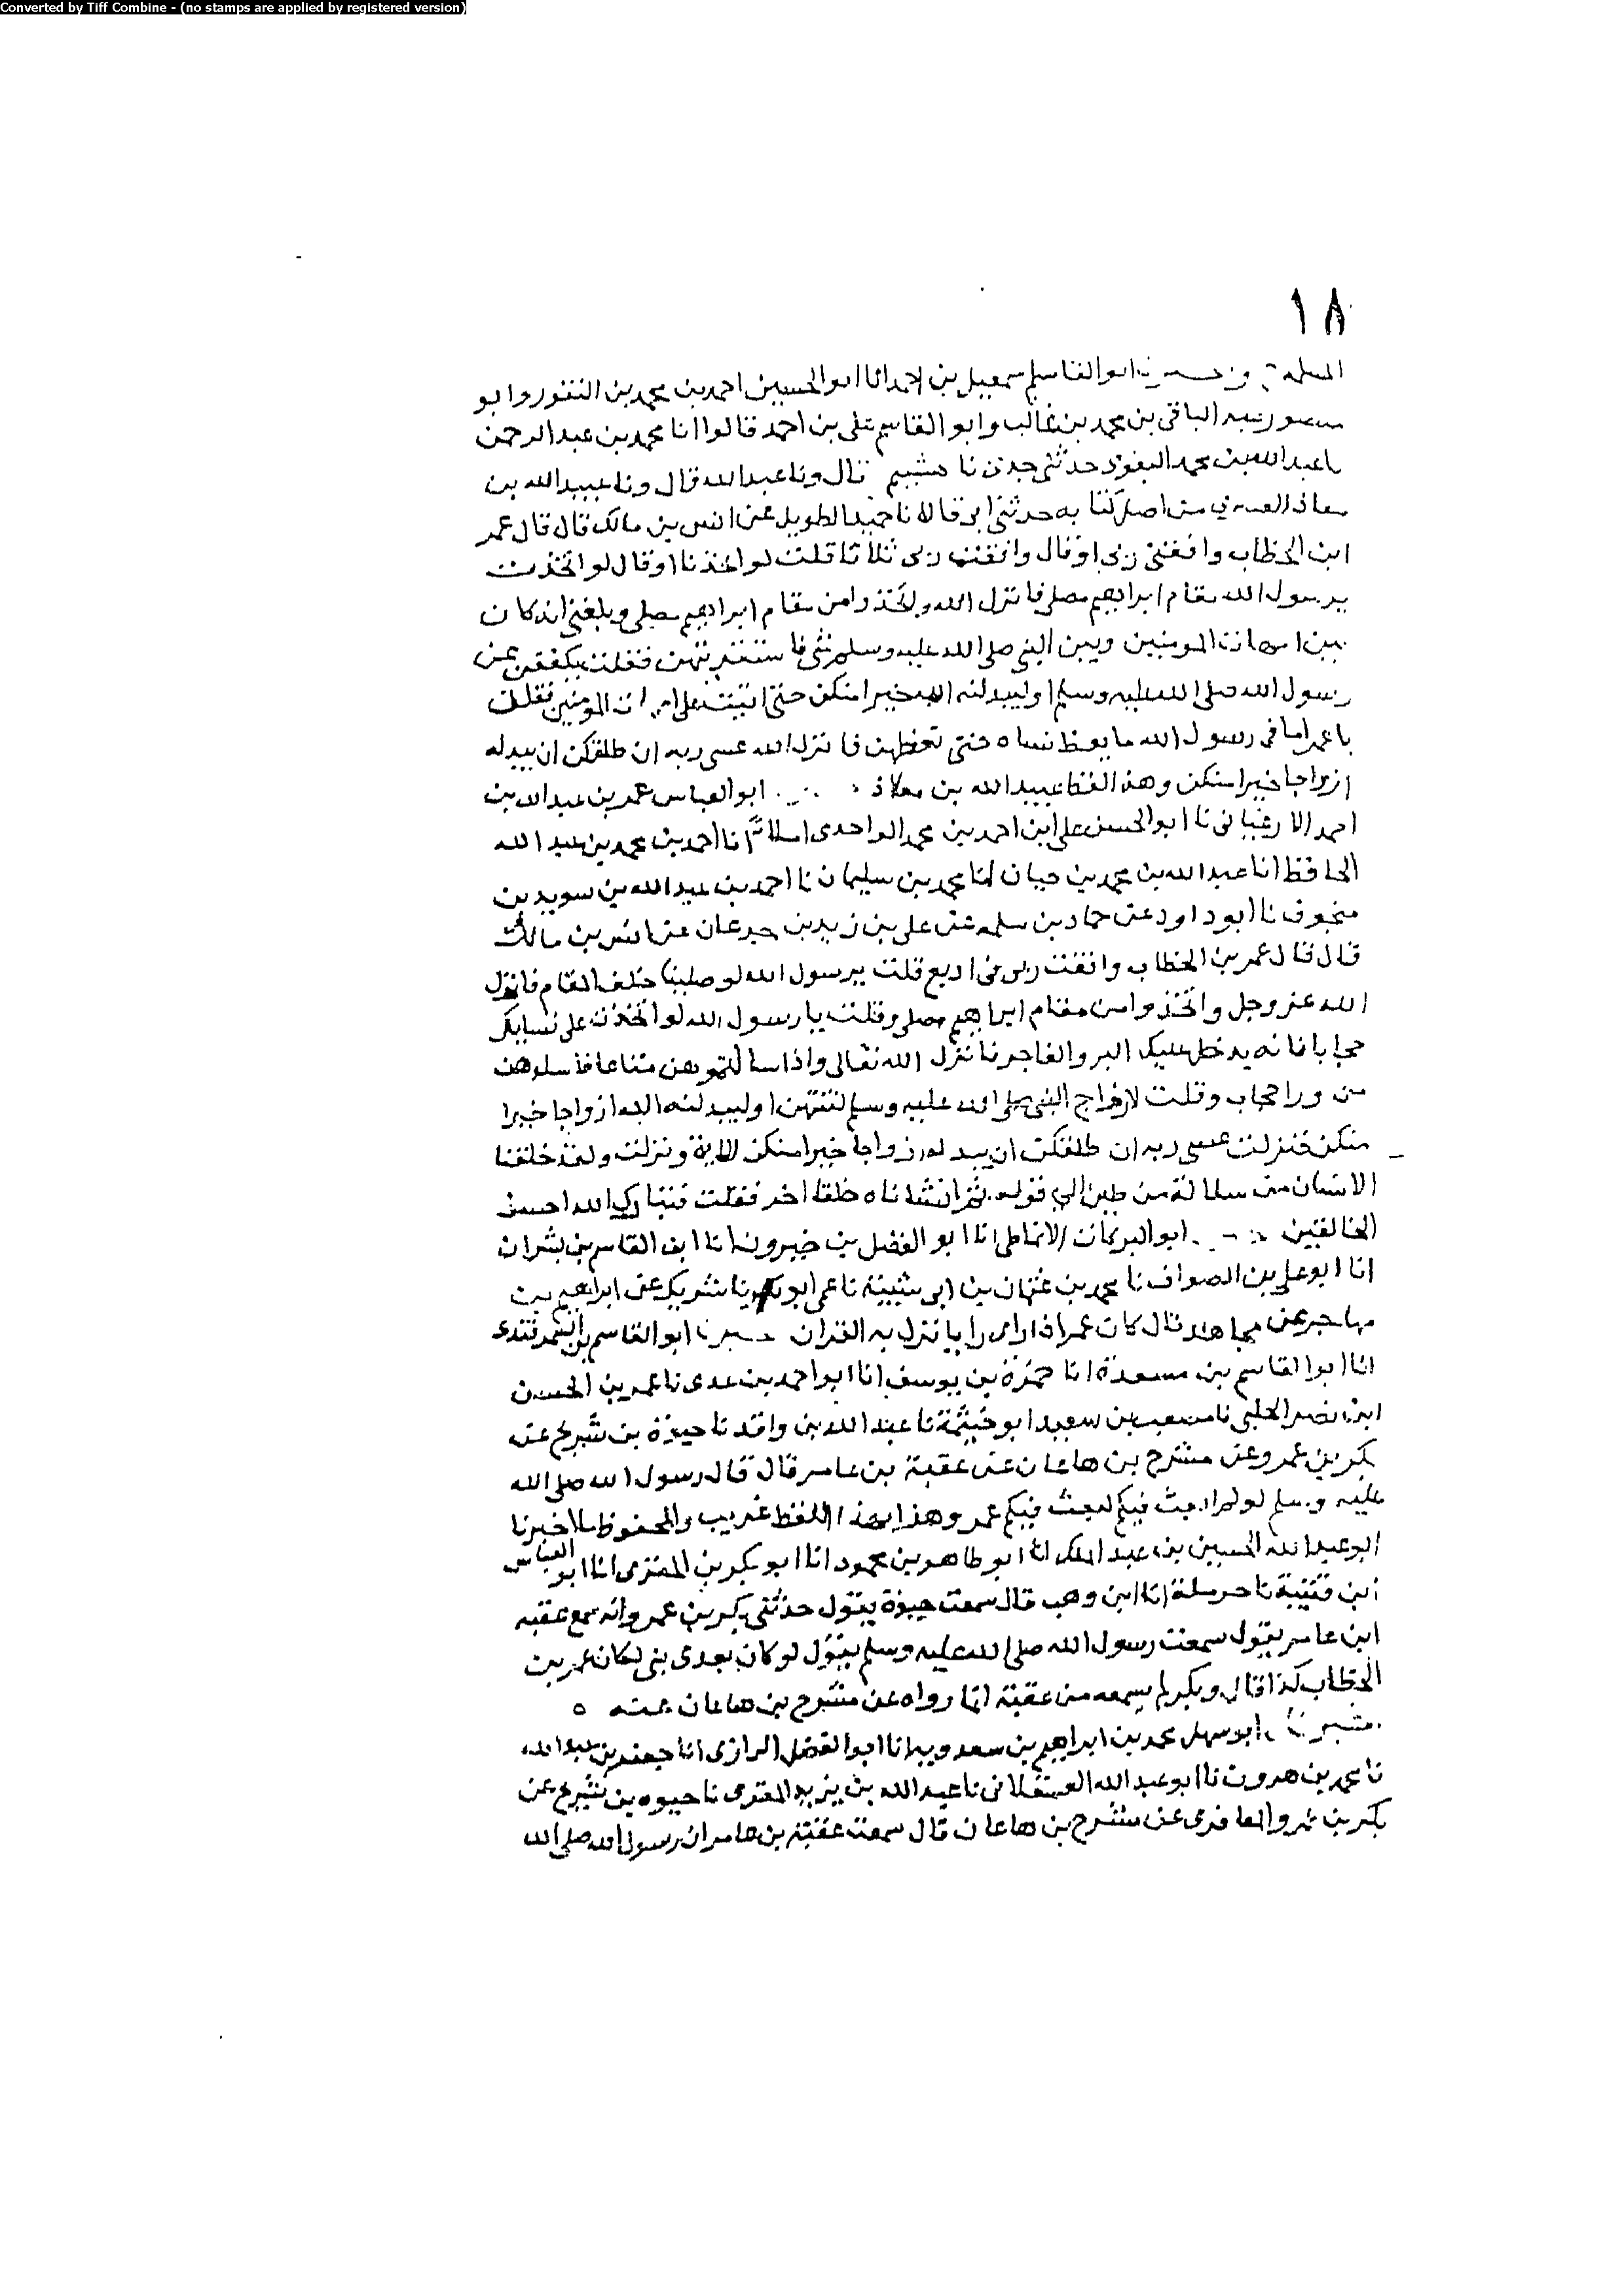 Converted by Tiff Combine - (no stamps are applied by registered version)
١٨
ابو القاسم سمعيل بن احمد انا ابو الحسين احمد بن محمد بن النقور وابو
عبد الباقى بن محمد بن غالب وابو القاسم على بن احمد قالوا انا محمد بن عبد الرحمن
نا عبد الله بن محمد البغوى حدثنى جدى نا هشيم قال ونا عبد الله قال ونا عبيد الله بن
معاذ من اصل كتابه حدثنى ابى قالا نا حميد الطويل عن انس بن مالك قال قال عمر
ابن الخطاب وافقنى ربى اوقال وافقت ربى ثلاثا قلت لو اتخذنا اوقال لو اتخذت
يرسول الله مقام ابراهيم مصلى فانزل الله واتخذوا من مقام ابراهيم مصلى وبلغنى انه كان
بين امهات المومنين وبين النبى صلى الله عليه وسلم شى فاستقريتهن فقلت لتكففن عن
رسول الله صلى الله عليه وسلم او ليبدلنه الله خيرا منكن حتى اتيت على ات المومنين فقلت
يا عمر اما فى رسول الله ما يعظ نساه حتى تعظهن فانزل الله عسى ربه ان طلقكن ان يبدله
ازواجا خيرا منكن وهذا لفظ عبيد الله بن معاذ ابو العباس عمر بن عبد الله بن
احمد الارغيانى نا ابو الحسن على ابن احمد بن محمد الواحدى املاً انا احمد بن محمد بن عبد الله
الحافظ انا عبد الله بن محمد بن حيان نا محمد بن سليمان نا احمد بن عبد الله بن سويد بن
منجوف نا ابو داود عن حماد بن سلمه عن على بن زيد بن جدعان عن انس بن مالك
قال قال عمر بن الخطاب وافقت ربى فى اربع قلت يرسول الله لو صلينا خلف المقام فانزل
الله عز وجل واتخذوا من مقام ابراهيم مصلى وقلت يا رسول الله لو اتخذت على نسايك
حجابا فانه يدخل عليك البر والفاجر فانزل الله تعالى واذا سالتموهن متاعا فاسلوهن
من ورا حجاب وقلت لازواج النبى صلى الله عليه وسلم لتنتهن او ليبدلنه الله ازواجا خيرا
منكن فنزلت عسى ربه ان طلقكن ان يبدله ازواجا خيرا منكن الاية ونزلت ولقد خلقنا
الانسان من سلالة من طين الى قوله ثم انشاناه خلقا اخر فقلت فتبارك الله احسن
الخالقين ابو البركات الانماطى انا ابو الفضل بن خيرون انا ابن القاسم بن بشران
انا ابو على بن الصواف نا محمد بن عثمان بن ابى شيبة نا عمى ابو بكر نا شريك عن ابراهيم بن
مهاجر عن مجاهد قال كان عمر اذا راى رايا نزل به القران ابو القاسم بن السمرقندى
انا ابو القاسم بن مسعدة انا حمزة بن يوسف انا ابو احمد بن عدى نا عمر بن الحسن
ابن نصر الحلبى نا مصعب بن سعيد ابو خيثمة نا عبد الله بن واقد نا حيوة بن شريح عن
بكر بن عمرو عن مشرح بن هاعان عن عقبة بن عامر قال قال رسول الله صلى الله
عليه وسلم لو لم ابعث فيكم لبعث فيكم عمر وهذا بهذا اللفظ غريب والمحفوظ ما اخبرنا
ابو عبد الله الحسين بن عبد الملك انا ابو طاهر بن محمود انا ابو بكر بن المقرى انا ابو العباس
ابن قتيبة نا حرملة انا ابن وهب قال سمعت حيوة يقول حدثنى بكر بن عمرو انه سمع عقبه
ابن عامر يقول سمعت رسول الله صلى الله عليه وسلم يقول لو كان بعدى نبى لكان عمر بن
الخطاب كذا قال وبكر لم يسمعه من عقبة انما رواه عن مشرح بن هاعان عنه ه
ابو سهل محمد بن ابراهيم بن سعدويه انا ابو الفضل الرازى انا جعفر بن عبد الله
نا محمد بن هرون نا ابو عبد الله العسقلانى نا عبد الله بن يزيد المقرى نا حيوه بن شريح عن
بكر بن عمرو المعافرى عن مشرح بن هاعان قال سمعت عقبة بن عامر ان رسول الله صلى الله